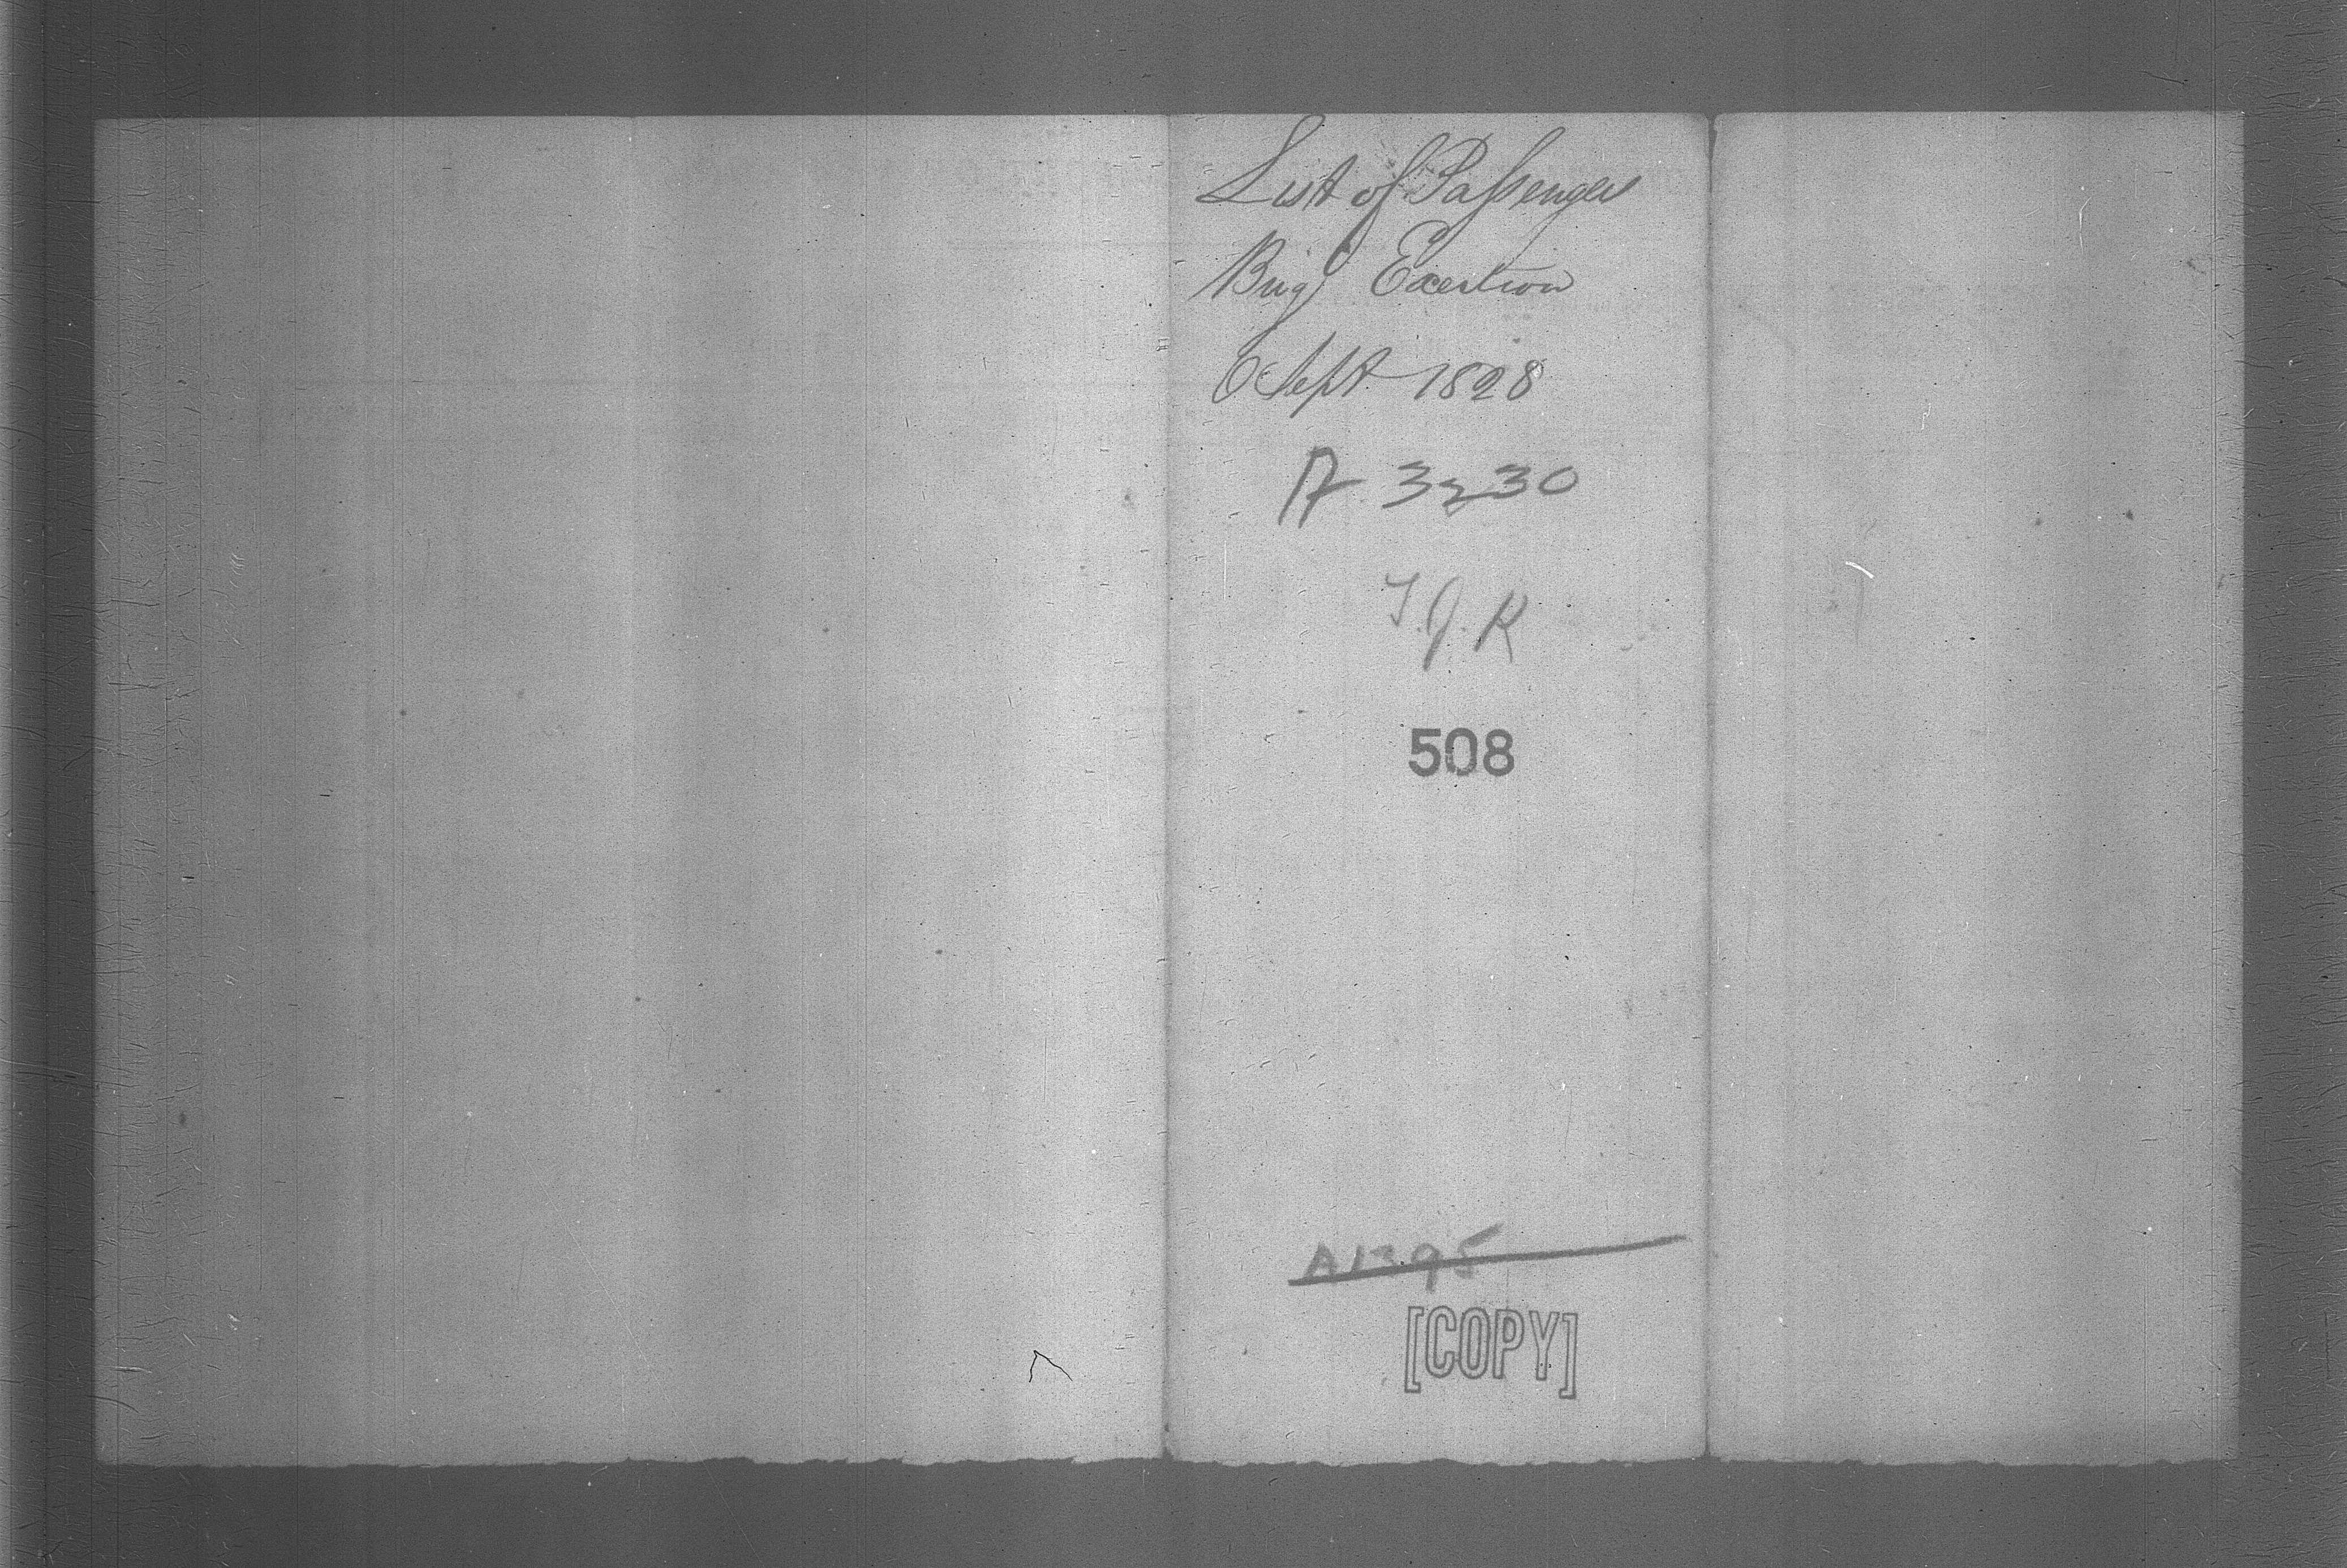 List of Passengers
Brig Exertion
6 Sept 1828
A 3230
T.J.K
508
A1395
[COPY]